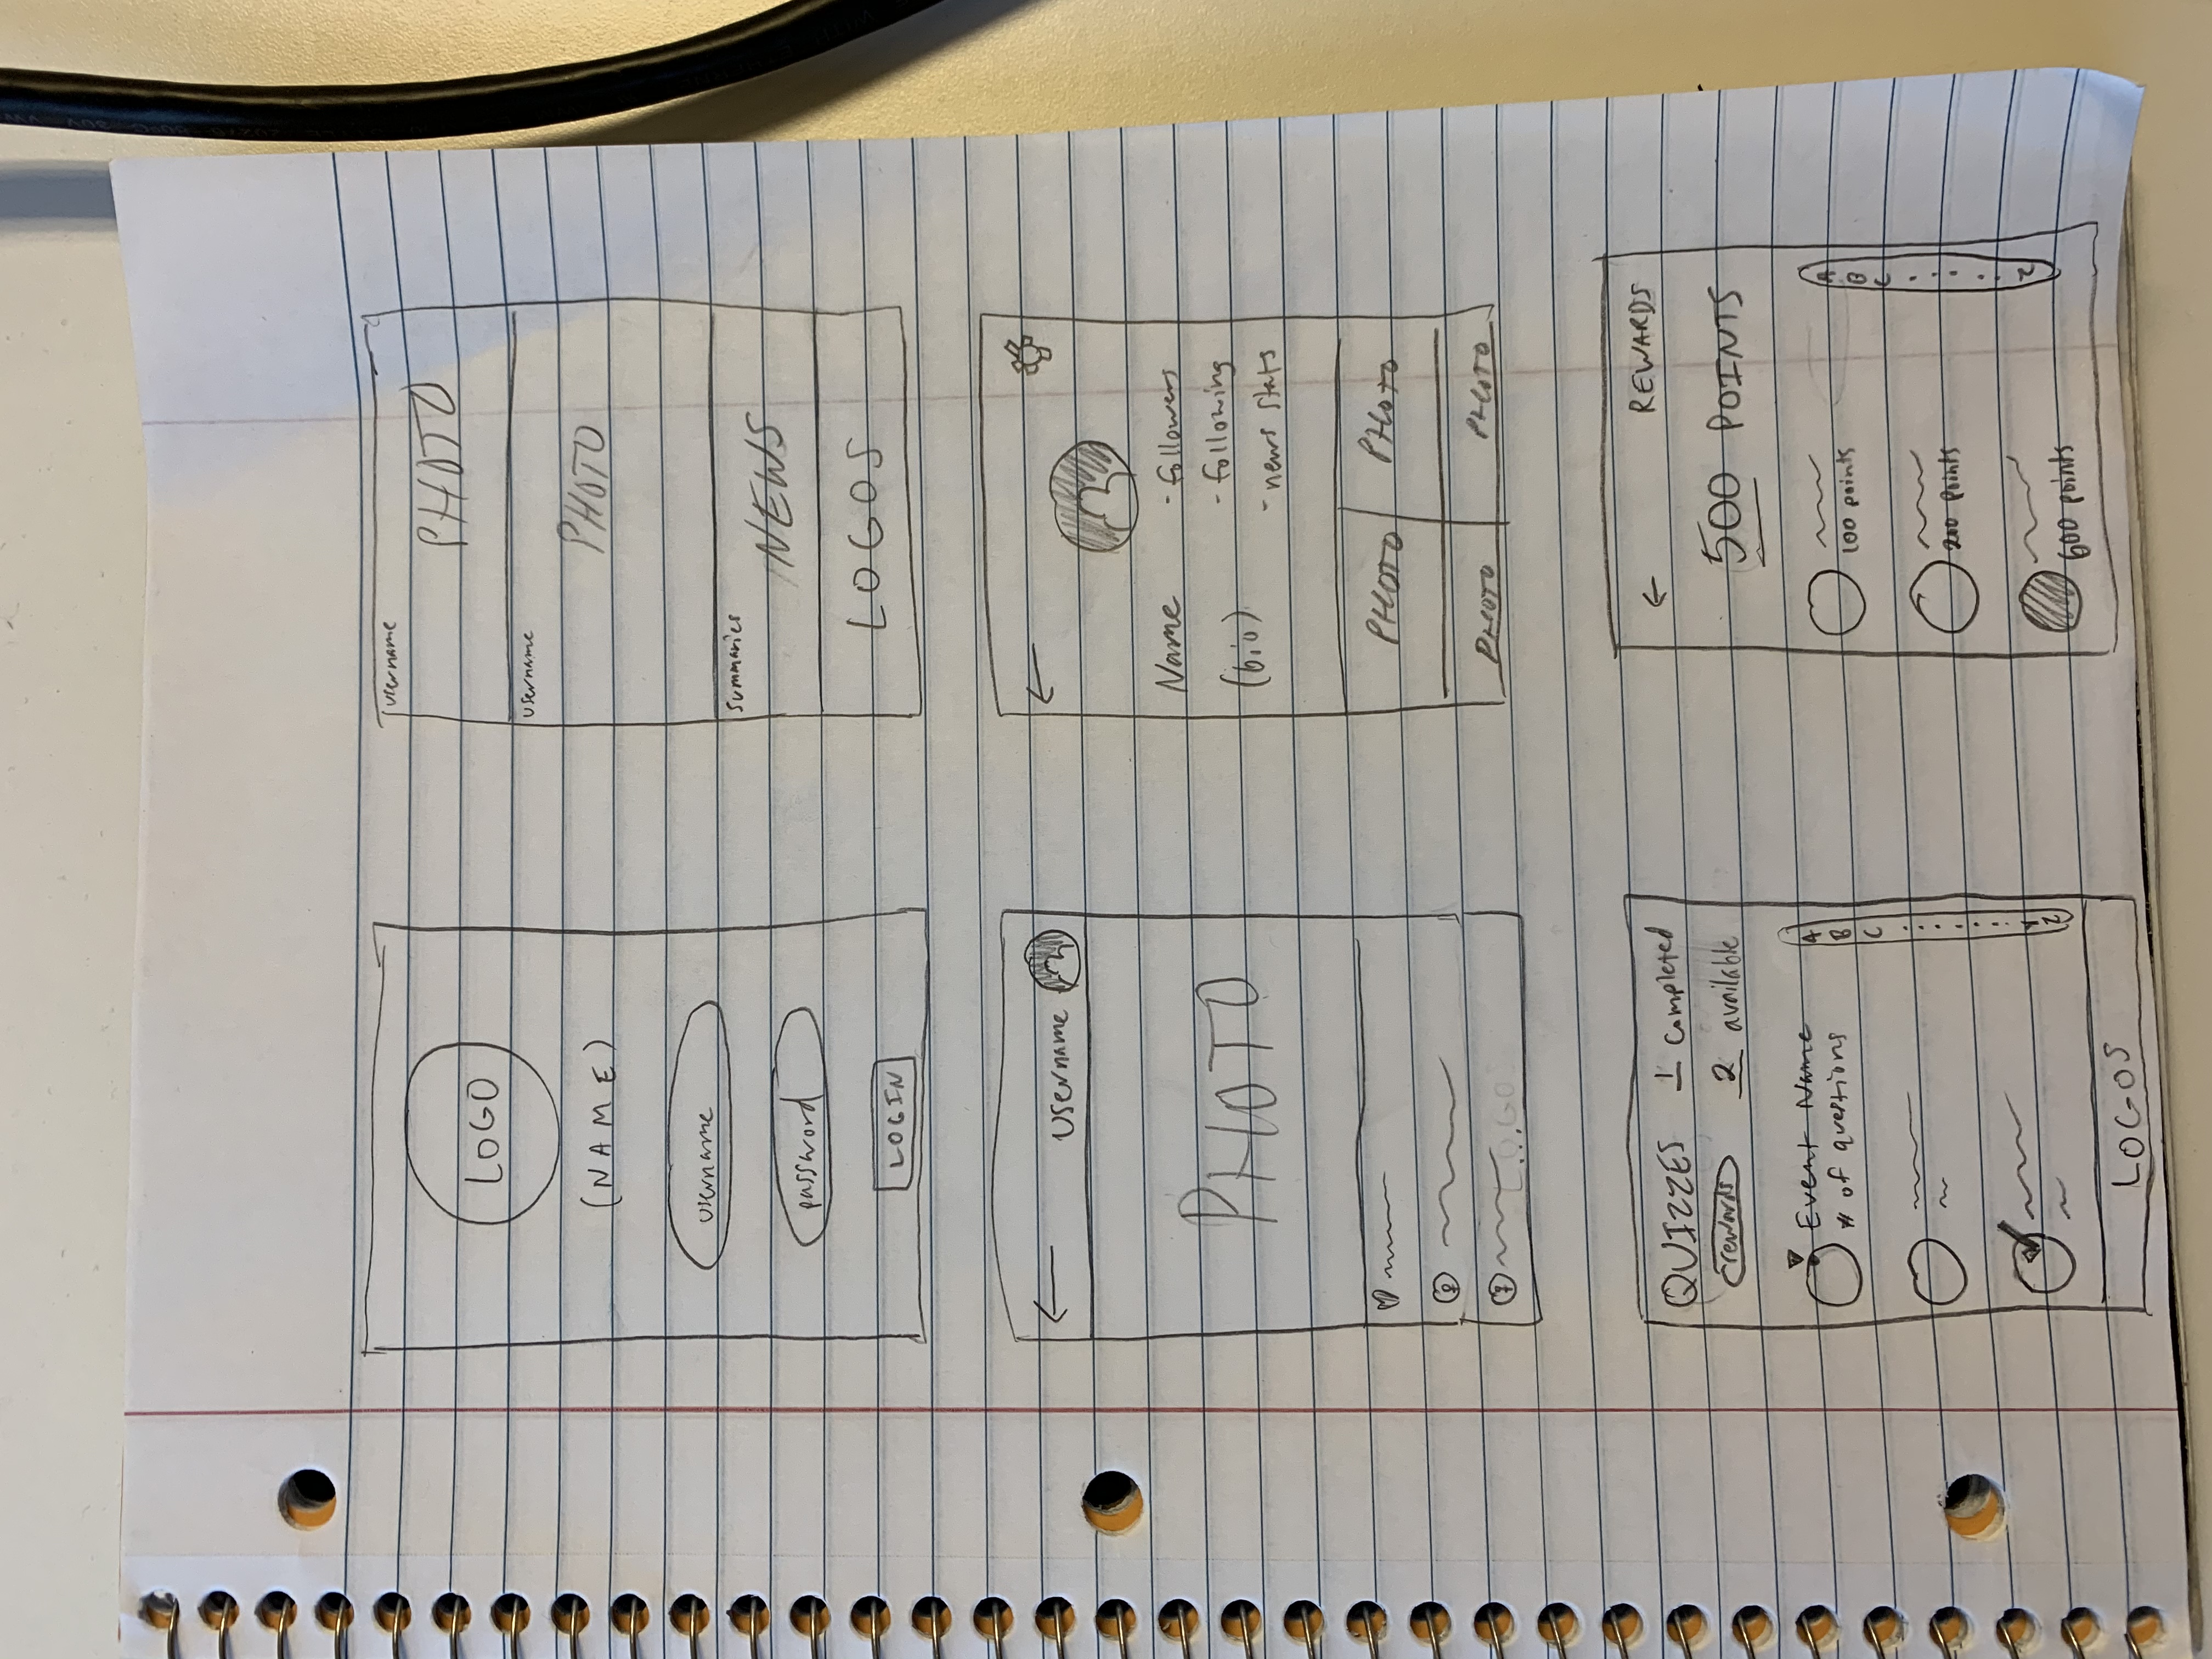 LOGO
(NAME)
username
password
LOGIN
username
PHOTO
username
PHOTO
summaries
NEWS
LOGOS
username
PHOTO
Name
(bio)
- followers
- following
- news stats
PHOTO PHOTO
PHOTO PHOTO
QUIZZES 1 completed
rewards 2 available
Event Name
# of questions
A
B
C
Z
LOGOS
REWARDS
500 POINTS
100 points
200 points
600 points
A
B
C
Z